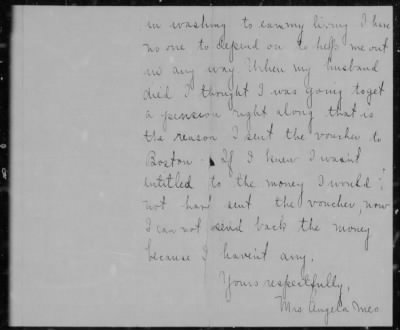 in washing to earn my living I have
no one to depend on to help me out
in any way When my husband
died I thought I was going to get
a pension right along that is
the reason I sent the voucher to
Boston. If I knew I wasnt
entitled to the money I would
not have sent the voucher, now
I can not send back the money
because I havent any.
Yours respectfully,
Mrs Angela Meo